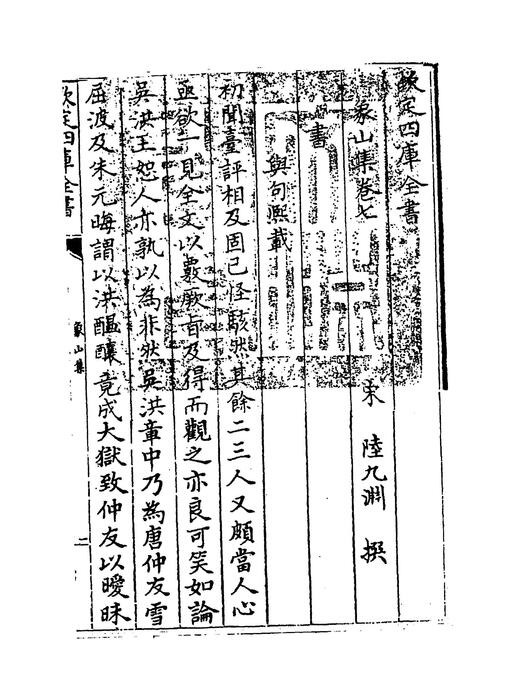 欽定四庫全書
象山集卷七
宋 陸九淵 撰
書
與勾熙載
初聞臺評相及固已怪駭然其餘二三人又頗當人心
亟欲一見全文以覈厥旨及得而觀之亦良可笑如論
吳洪王恕人亦孰以為非然吳洪章中乃為唐仲友雪
屈波及朱元晦謂以洪醞釀竟成大獄致仲友以曖昧
欽定四庫全書
象山集
二